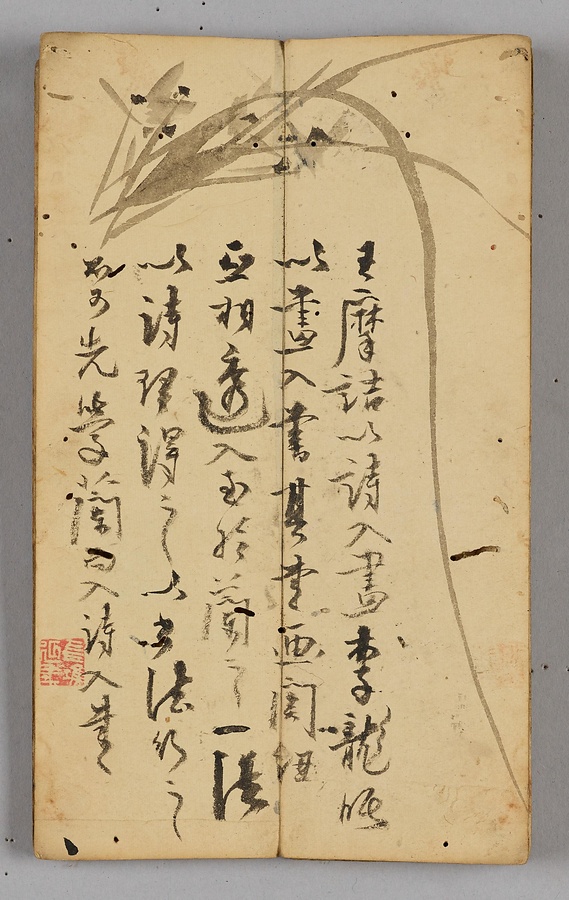 王摩詰以詩入畫李龍眠
以畫入書其書畫関紐
互相透入至於蘭之一法
以詩理得之以書法行之
先學蘭自入詩入書